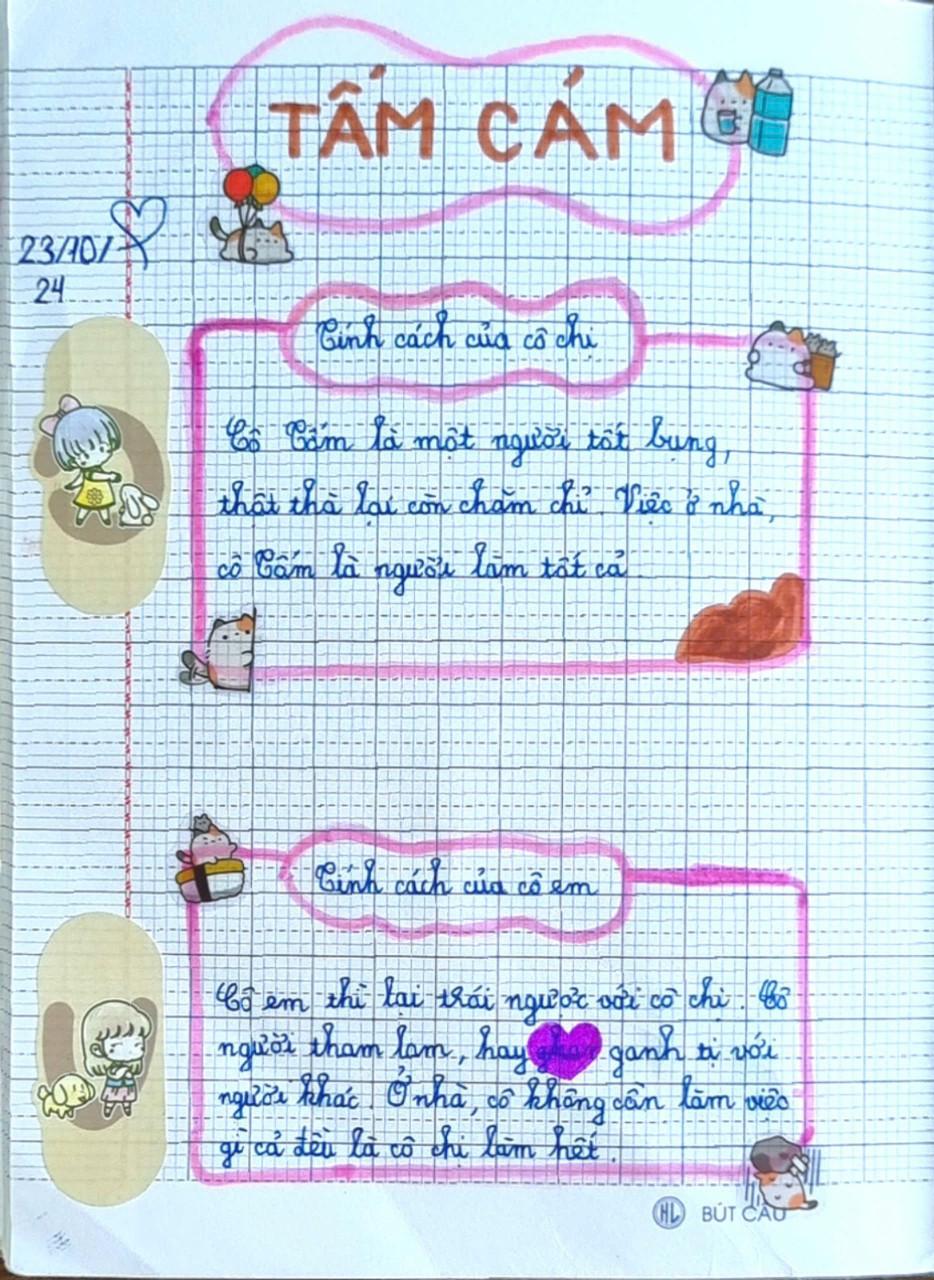 TẤM CÁM
23/10/
24
Tính cách của cô chị
Cô Tấm là một người tốt bụng,
thật thà lại còn chăm chỉ. Việc ở nhà,
cô Tấm là người làm tất cả.
Tính cách của cô em
Cô em thì lại trái ngược với cô chị. Cô
người tham lam, hay ganh tị với
người khác. Ở nhà, cô không cần làm việc
gì cả đều là cô chị làm hết.
HL BÚT CÂU